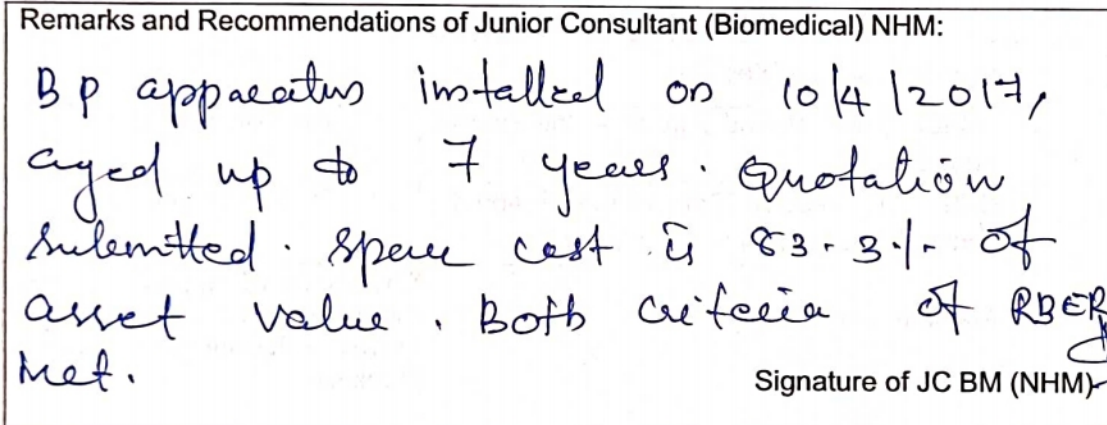 Remarks and Recommendations of Junior Consultant (Biomedical) NHM:
BP apparatus installed on 10/4/2017,
aged up to 7 years. Quotation
submitted. Spare cost is 83.3% of
asset value. Both criteria of RBER
met.
Signature of JC BM (NHM)